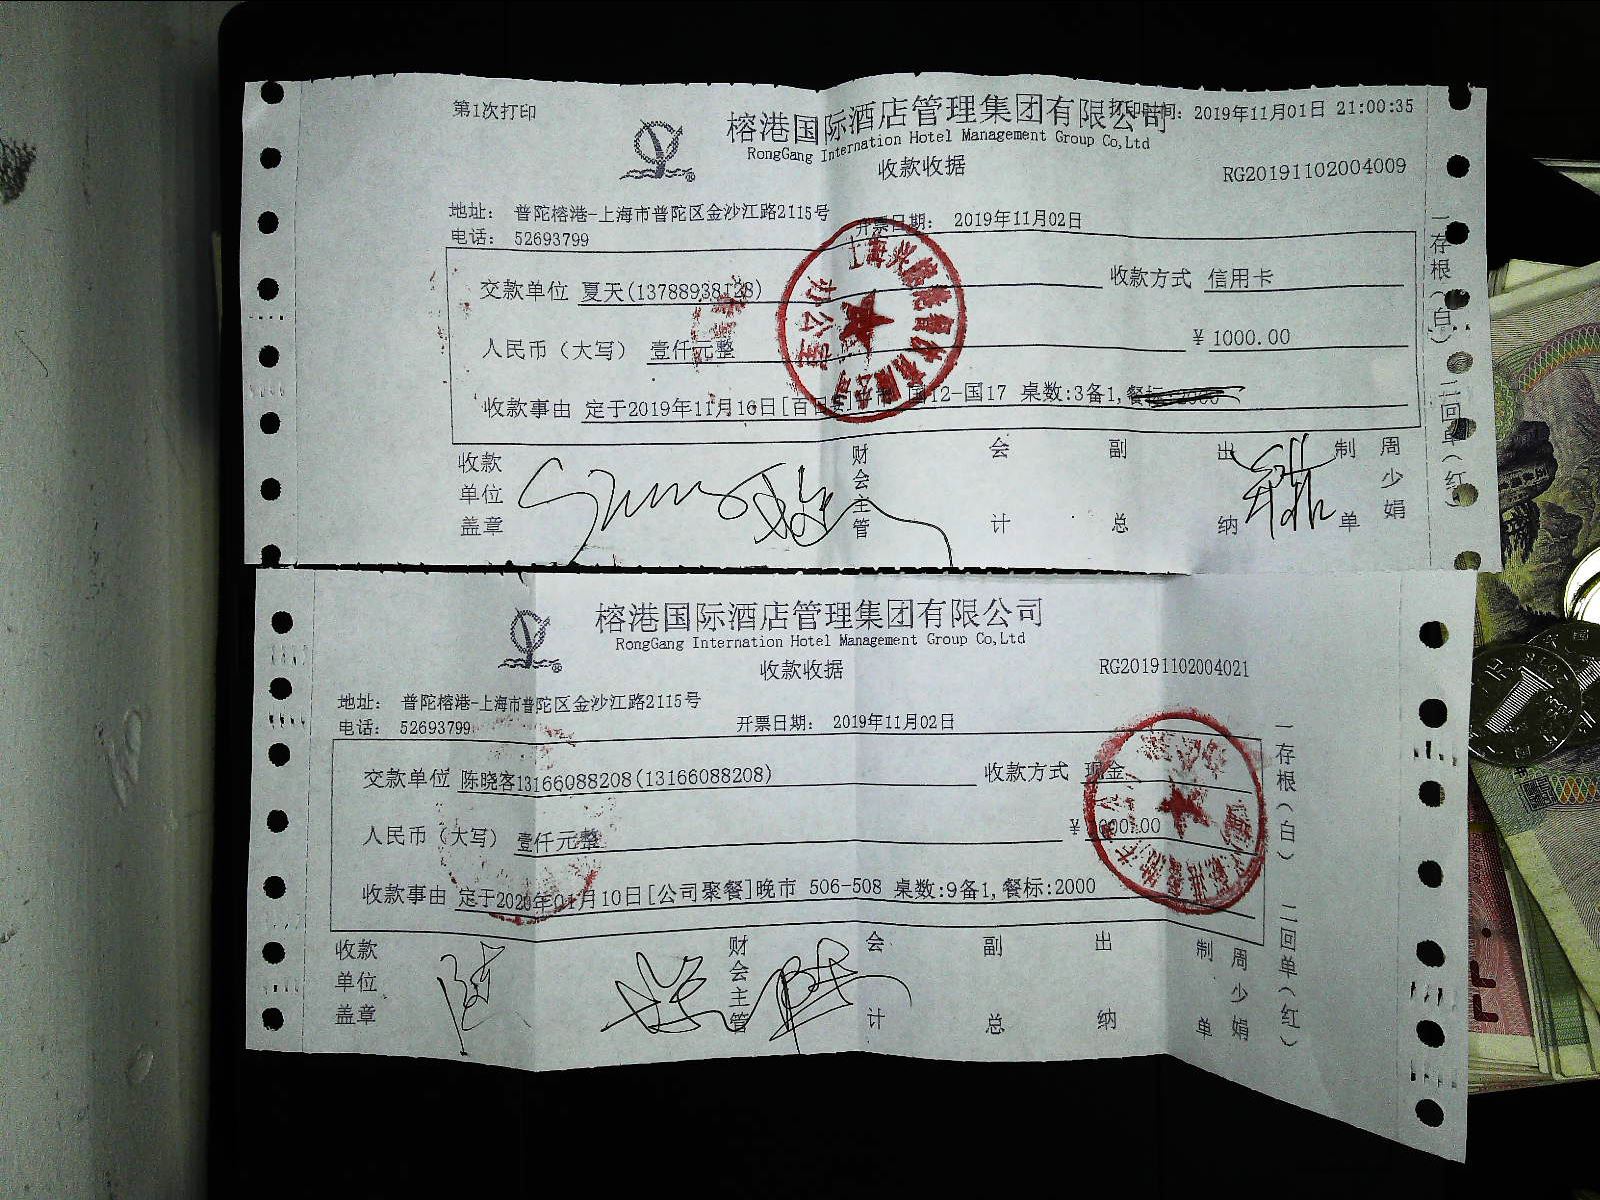 第1次打印
打印时间: 2019年11月01日 21:00:35
榕港国际酒店管理集团有限公司
RongGang Internation Hotel Management Group Co,Ltd
收款收据
RG20191102004009
地址: 普陀榕港-上海市普陀区金沙江路2115号
电话: 52693799
开票日期: 2019年11月02日
交款单位 夏天(13788938128)
收款方式 信用卡
人民币(大写) 壹仟元整
¥ 1000.00
收款事由 定于2019年11月16日[百日 国12-国17 桌数:3备1,餐标
收款单位盖章
财会主管
会计
副总
出纳
制单
周少娟
一存根(白) 二回单(红)
办公室
榕港国际酒店管理集团有限公司
RongGang Internation Hotel Management Group Co,Ltd
收款收据
RG20191102004021
地址: 普陀榕港-上海市普陀区金沙江路2115号
电话: 52693799
开票日期: 2019年11月02日
交款单位 陈晓客13166088208(13166088208)
收款方式 现金
人民币(大写) 壹仟元整
¥ 000.00
收款事由 定于2020年01月10日[公司聚餐]晚市 506-508 桌数:9备1,餐标:2000
收款单位盖章
财会主管
会计
副总
出纳
制单
周少娟
一存根(白) 二回单(红)